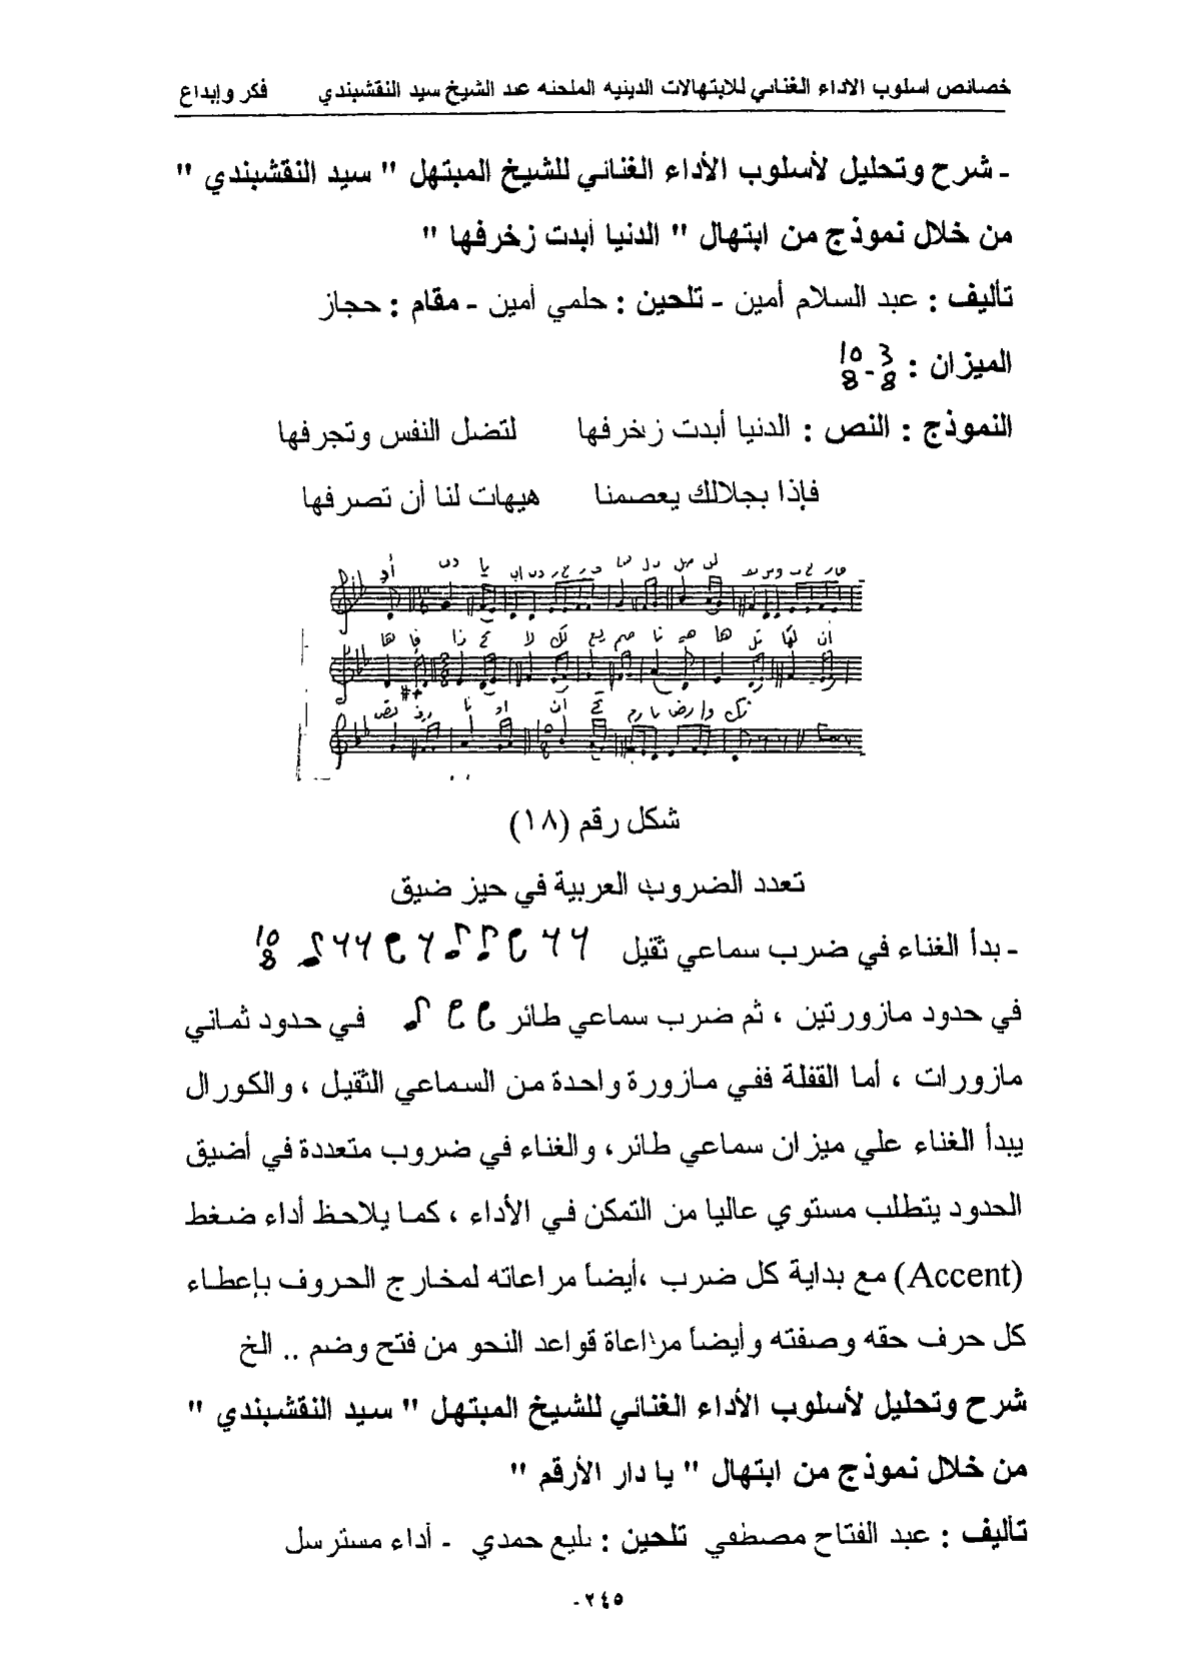 خصائص اسلوب الاداء الغنائي للابتهالات الدينيه الملحنه عند الشيخ سيد النقشبندي فكر وإبداع
ـ شرح وتحليل لأسلوب الأداء الغنائي للشيخ المبتهل " سيد النقشبندي "
من خلال نموذج من ابتهال " الدنيا أبدت زخرفها "
تأليف : عبد السلام أمين ـ تلحين : حلمي أمين ـ مقام : حجاز
الميزان : 3/8 - 10/8
النموذج : النص : الدنيا أبدت زخرفها لتضل النفس وتجرفها
فإذا بجلالك يعصمنا هيهات لنا أن تصرفها
شكل رقم (١٨)
تعدد الضروب العربية في حيز ضيق
ـ بدأ الغناء في ضرب سماعي ثقيل 10/8
في حدود مازورتين ، ثم ضرب سماعي طائر في حدود ثماني
مازورات ، أما القفلة ففي مازورة واحدة من السماعي الثقيل ، والكورال
يبدأ الغناء علي ميزان سماعي طائر، والغناء في ضروب متعددة في أضيق
الحدود يتطلب مستوي عاليا من التمكن في الأداء ، كما يلاحظ أداء ضغط
(Accent) مع بداية كل ضرب ،أيضاً مراعاته لمخارج الحروف بإعطاء
كل حرف حقه وصفته وأيضاً مراعاة قواعد النحو من فتح وضم .. الخ
شرح وتحليل لأسلوب الأداء الغنائي للشيخ المبتهل " سيد النقشبندي "
من خلال نموذج من ابتهال " يا دار الأرقم "
تأليف : عبد الفتاح مصطفي تلحين : بليغ حمدي ـ أداء مسترسل
-٢٤٥